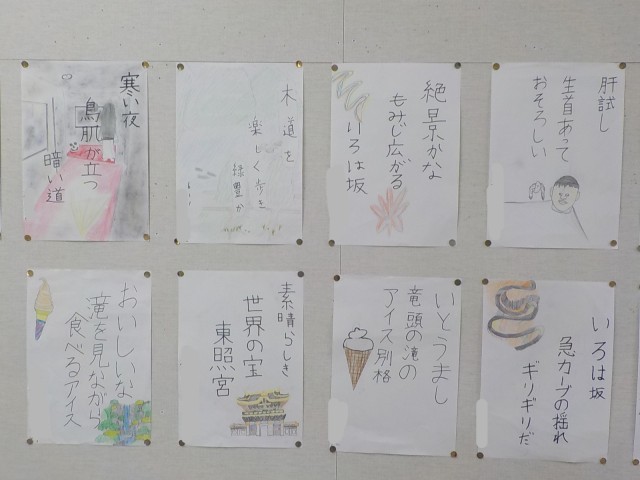 寒い夜
鳥肌が立つ
暗い道
木道を
楽しく歩き
緑豊か
絶景かな
もみじ広がる
いろは坂
肝試し
生首あって
おそろしい
おいしいな
滝を見ながら
食べるアイス
素晴らしき
世界の宝
東照宮
いとうまし
竜頭の滝の
アイス別格
いろは坂
急カーブの揺れ
ギリギリだ